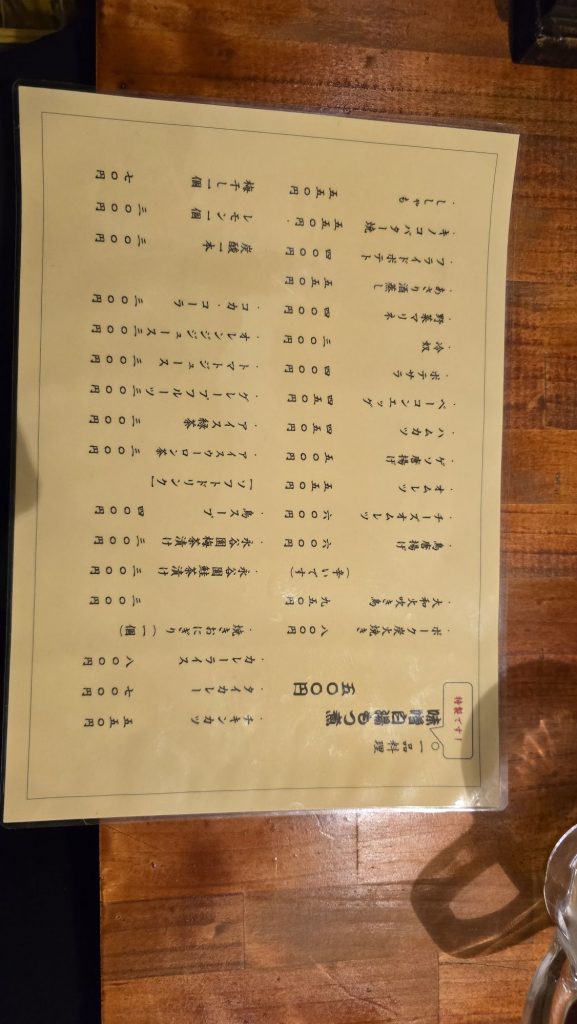 特製です!
〇一品料理
味噌白湯もつ煮 五〇〇円
・ポーク炭火焼き 八〇〇円
・大和火吹き鳥 九五〇円
(辛いです)
・鳥唐揚げ 六〇〇円
・チーズオムレツ 六〇〇円
・オムレツ 五五〇円
・ゲソ唐揚げ 五〇〇円
・ハムカツ 四五〇円
・ベーコンエッグ 四五〇円
・ポテサラ 四〇〇円
・冷奴 三〇〇円
・野菜マリネ 四〇〇円
・あさり酒蒸し 五五〇円
・フライドポテト 四〇〇円
・キノコバター焼 五五〇円
・ししゃも 五五〇円
・チキンカツ 五五〇円
・タイカレー 七〇〇円
・カレーライス 八〇〇円
・焼きおにぎり(一個)
三〇〇円
・永谷園鮭茶漬け 三〇〇円
・永谷園梅茶漬け 三〇〇円
・鳥スープ 四〇〇円
[ソフトドリンク]
・アイスウーロン茶 三〇〇円
・アイス緑茶 三〇〇円
・グレープフルーツ 三〇〇円
・トマトジュース 三〇〇円
・オレンジジュース 三〇〇円
・コカ・コーラ 三〇〇円
炭酸一本 三〇〇円
レモン一個 三〇〇円
梅干し一個 七〇円